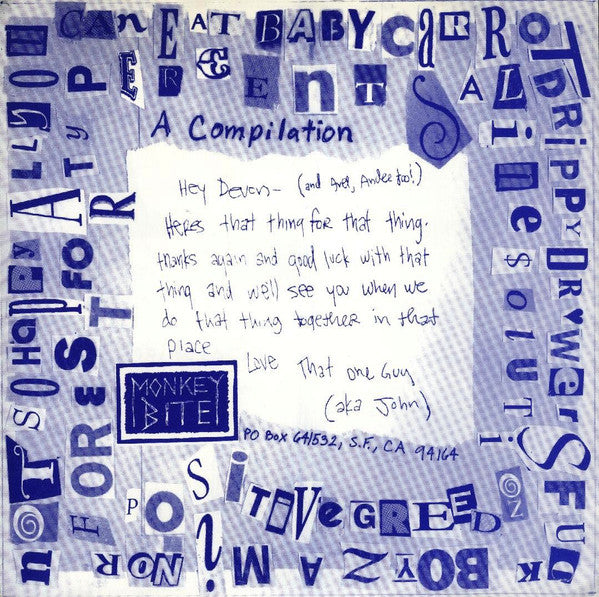 NOT SO HAPPY
ALL YOU CAN EAT
BABY CARROT
DRIPPY DR♥WERS
FUCK BOYZ
A MiNOR
FOREST
SALINE SOLUTION
POSITIVE GREED
A Compilation
Hey Devon- (and Avel, Andee too!.)
Heres that thing for that thing.
thanks again and good luck with that
thing and we'll see you when we
do that thing together in that
place
Love That one Guy
(aka John)
MONKEY
BITE
PO BOX 641532, S.F., CA 94164